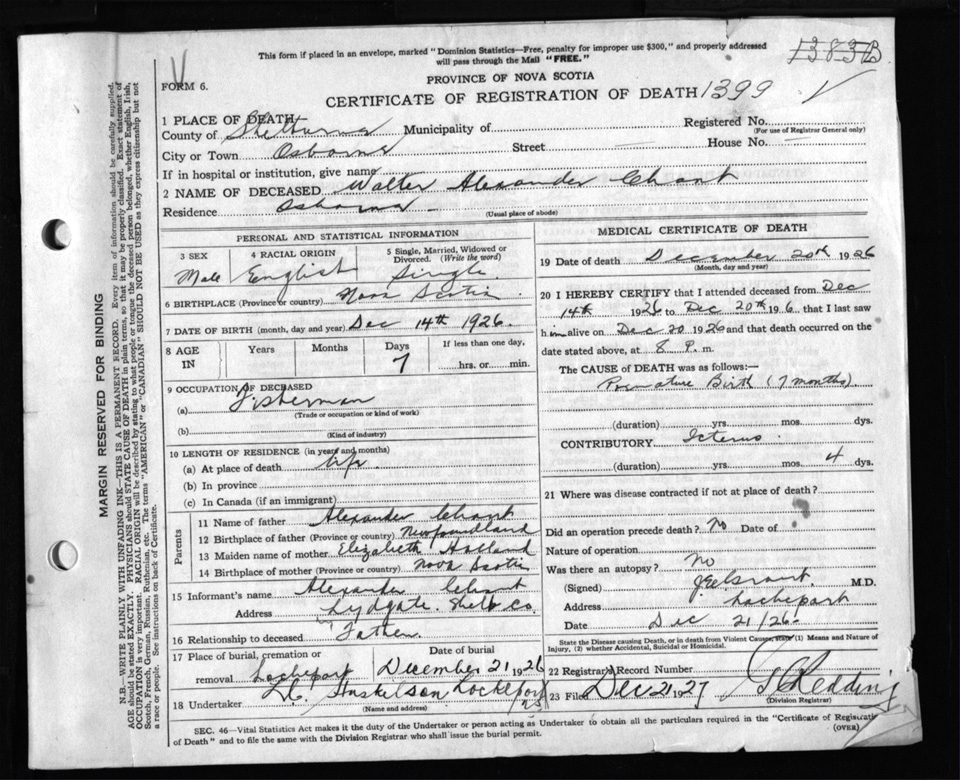 This form if placed in an envelope, marked "Dominion Statistics—Free, penalty for improper use $300," and properly addressed
will pass through the Mail "FREE."
1383B
FORM 6.
PROVINCE OF NOVA SCOTIA
CERTIFICATE OF REGISTRATION OF DEATH 1399
1 PLACE OF DEATH
County of Shelburne Municipality of Registered No.
(For use of Registrar General only)
City or Town Osborne Street House No.
If in hospital or institution, give name
2 NAME OF DECEASED Walter Alexander Chant
Residence Osborne
(Usual place of abode)
PERSONAL AND STATISTICAL INFORMATION
3 SEX 4 RACIAL ORIGIN 5 Single, Married, Widowed or
Divorced. (Write the word)
Male English Single
6 BIRTHPLACE (Province or country) Nova Scotia
7 DATE OF BIRTH (month, day and year) Dec 14th 1926.
8 AGE IN Years Months Days If less than one day,
7 hrs. or min.
9 OCCUPATION OF DECEASED
(a) Fisherman
(Trade or occupation or kind of work)
(b)
(Kind of industry)
10 LENGTH OF RESIDENCE (in years and months)
(a) At place of death life
(b) In province
(c) In Canada (if an immigrant)
Parents
11 Name of father Alexander Chant
12 Birthplace of father (Province or country) Newfoundland
13 Maiden name of mother Elizabeth Holland
14 Birthplace of mother (Province or country) Nova Scotia
15 Informant's name Alexander Chant
Address Lydgate. Shelb Co.
16 Relationship to deceased Father.
17 Place of burial, cremation or Date of burial
removal Lockeport December 21 1926
18 Undertaker Lockeport
NS
(Name and address)
MEDICAL CERTIFICATE OF DEATH
19 Date of death December 20th 1926
(Month, day and year)
20 I HEREBY CERTIFY that I attended deceased from Dec
14th 1926 to Dec 20th 1926, that I last saw
him alive on Dec 20 1926 and that death occurred on the
date stated above, at 8 P. m.
The CAUSE OF DEATH was as follows:—
Premature Birth (7 months).
(duration) yrs. mos. dys.
CONTRIBUTORY Icterus
(duration) yrs. mos. 4 dys.
21 Where was disease contracted if not at place of death?
Did an operation precede death? No Date of ?
Nature of operation
Was there an autopsy? No
(Signed) M.D.
Address Lockeport
Date Dec 21/26
State the Disease causing Death, or in death from Violent Causes, state (1) Means and Nature of
Injury, (2) whether Accidental, Suicidal or Homicidal.
22 Registrar's Record Number
23 Filed Dec 21 1927 Redding
(Division Registrar)
SEC. 46—Vital Statistics Act makes it the duty of the Undertaker or person acting as Undertaker to obtain all the particulars required in the "Certificate of Registration
of Death" and to file the same with the Division Registrar who shall issue the burial permit.
(OVER)
MARGIN RESERVED FOR BINDING
N.B.—WRITE PLAINLY WITH UNFADING INK—THIS IS A PERMANENT RECORD. Every item of information should be carefully supplied.
AGE should be stated EXACTLY. PHYSICIANS should STATE CAUSE OF DEATH in plain terms, so that it may be properly classified. Exact statement of
OCCUPATION is very important. RACIAL ORIGIN will be described by stating to what people or tongue the deceased person belonged, whether English, Irish,
Scotch, French, German, Russian, Ruthenian, etc. The terms "AMERICAN" or "CANADIAN" SHOULD NOT BE USED as they express citizenship but not
a race or people. See instructions on back of Certificate.